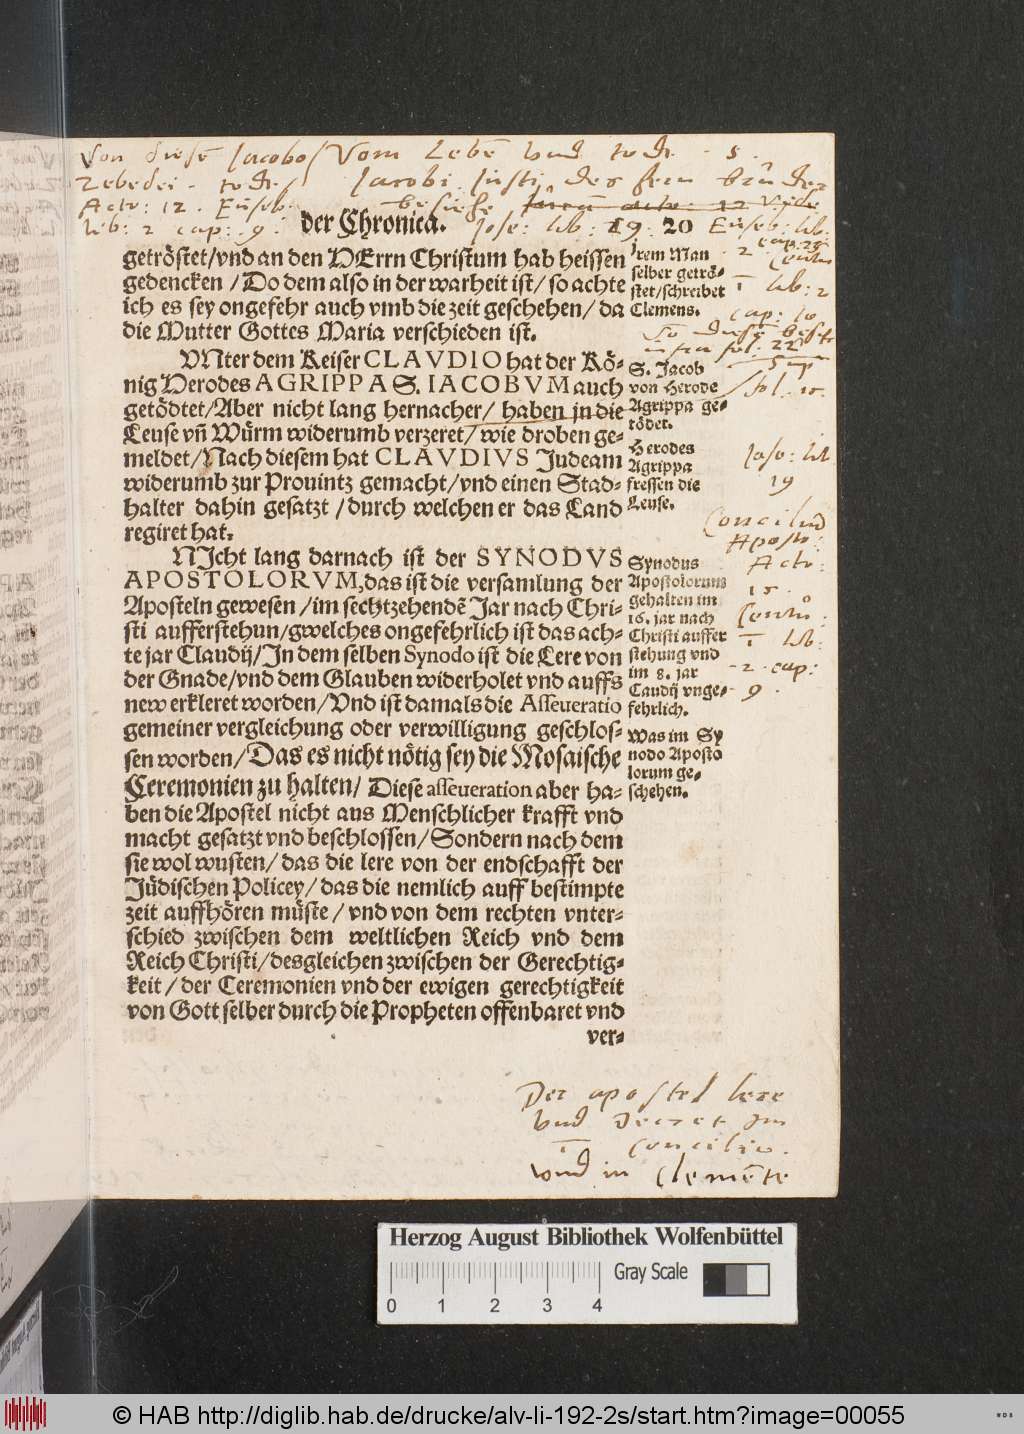 Von diesē Jacobo / Vom Lebē vnd todt . S.
Zebedei . todt / Jacobi Justi des hern brůder
Acto: 12 . Euseb. besiehe
lib: 2 cap: 9 . der Chronica. Jose: lib: 19. 20 Euseb: lib.
getröstet/vnd an den HErrn Christum hab heissen
gedencken / Do dem also in der warheit ist/ so achte
ich es sey ongefehr auch vmb die zeit geschehen/ da
die Mutter Gottes Maria verschieden ist.
jrem Man
selber getrö-
stet/schreibet
Clemens.
lib: 2
cap: 10
VNter dem Keiser CLAVDIO hat der Kö-
nig Herodes AGRIPPA S. IACOBVM auch
getödtet/Aber nicht lang hernacher/ haben jn die
Leuse vñ Würm widerumb verzeret/ wie droben ge-
meldet/Nach diesem hat CLAVDIVS Judeam
widerumb zur Prouintz gemacht/vnd einen Stad-
halter dahin gesatzt /durch welchen er das Land
regiret hat.
S. Jacob
von Herode
Agrippa ge-
tödet.
Herodes
Agrippa
fressen die
Leuse.
19
NJcht lang darnach ist der SYNODVS
APOSTOLORVM,das ist die versamlung der
Aposteln gewesen /im sechtzehendē Jar nach Chri-
sti aufferstehun/gwelches ongefehrlich ist das ach-
te jar Claudij/In dem selben Synodo ist die Lere von
der Gnade/vnd dem Glauben widerholet vnd auffs
new erkleret worden/Vnd ist damals die Asseueratio
gemeiner vergleichung oder verwilligung geschlos-
sen worden/Das es nicht nötig sey die Mosaische
Ceremonien zu halten/ Diese asseueration aber ha-
ben die Apostel nicht aus Menschlicher krafft vnd
macht gesatzt vnd beschlossen/Sondern nach dem
sie wol wusten/das die lere von der endschafft der
Jüdischen Policey/das die nemlich auff bestimpte
zeit auffhören müste / vnd von dem rechten vnter-
schied zwischen dem weltlichen Reich vnd dem
Reich Christi/desgleichen zwischen der Gerechtig-
keit / der Ceremonien vnd der ewigen gerechtigkeit
von Gott selber durch die Propheten offenbaret vnd
ver-
Synodus
Apostolorum
gehalten im
16. jar nach
Christi auffer
stehung vnd
im 8. jar
Caudij vnge-
fehrlich.
Was im Sy
nodo Aposto
lorum ge-
schehen.
Conciliū
Aposto:
Acto:
15 .
lib:
2 . cap:
9 .
Der apostel lere
vnd Decret im
Concilio.
vnd in Clemēte
Herzog August Bibliothek Wolfenbüttel
Gray Scale
0 1 2 3 4
© HAB http://diglib.hab.de/drucke/alv-li-192-2s/start.htm?image=00055